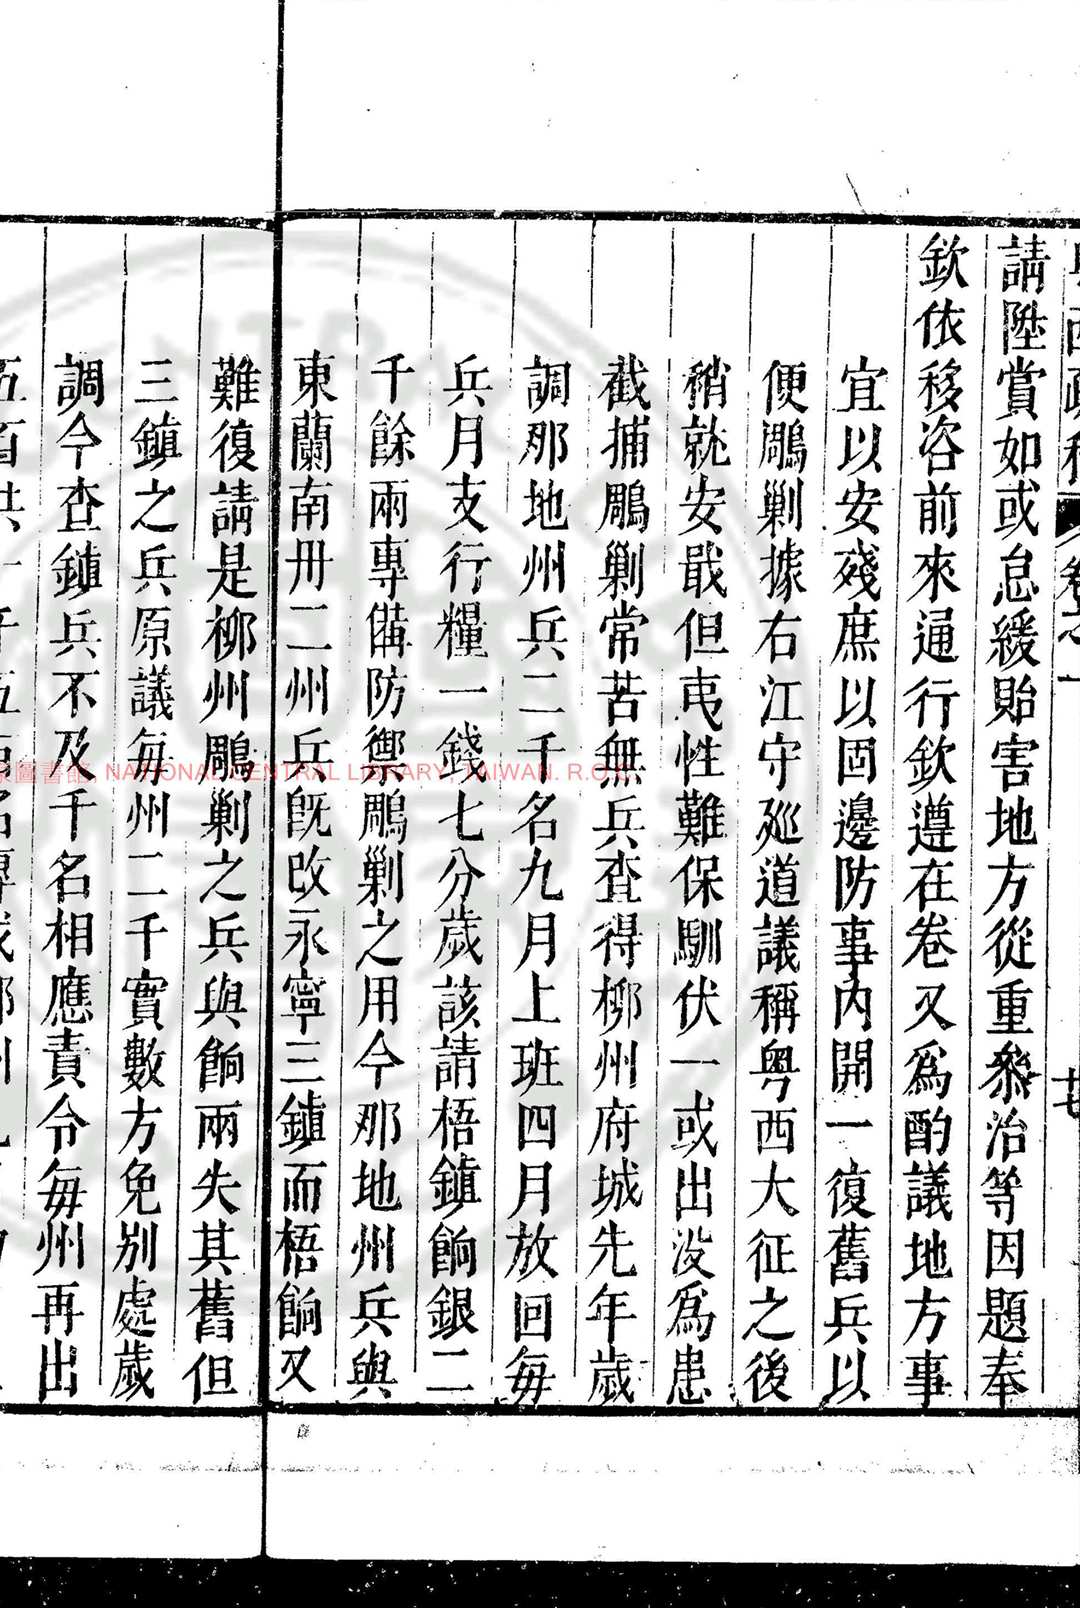 請陞賞如或怠緩貽害地方從重叅治等因題奉
欽依移咨前來通行欽遵在卷又爲酌議地方事
宜以安殘庶以固邊防事內開一復舊兵以
便鵰剿據右江守廵道議稱粤西大征之後
稍就安戢但夷性難保馴伏一或出沒爲患
截捕鵰剿常苦無兵查得柳州府城先年歲
調那地州兵二千名九月上班四月放回每
兵月支行糧一錢七分歲該請梧鎮餉銀二
千餘兩專備防禦鵰剿之用今那地州兵與
東蘭南丹二州兵旣改永寧三鎮而梧餉又
難復請是柳州鵰剿之兵與餉兩失其舊但
三鎮之兵原議每州二千實數方免別處歲
調今查鎮兵不及千名相應責令每州再出
NATIONAL CENTRAL LIBRARY, TAIWAN. R.O.C.
圖書館